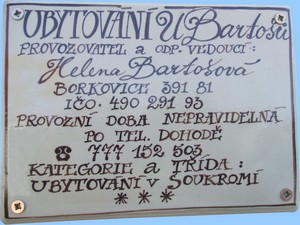 UBYTOVÁNÍ U Bartošů
PROVOZOVATEL a ODP. VEDOUCÍ:
Helena Bartošová
BORKOVICE 391 81
IČO. 490 291 93
PROVOZNÍ DOBA NEPRAVIDELNÁ
PO TEL. DOHODĚ
☎ 777 152 503
KATEGORIE a TŘÍDA:
UBYTOVÁNÍ V SOUKROMÍ
* * *